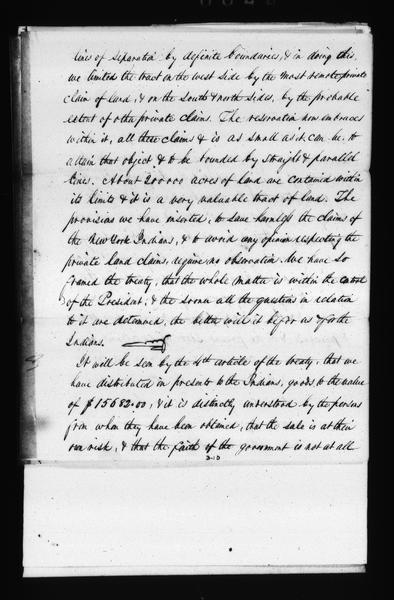 lines of separation by definite boundaries, & in doing this
we limited the tract on the west side by the most remote private
claim of land, & on the South & north sides, by the probable
extent of other private claims. The reservation now embraces
within it, all these claims & is as small as it can be, to
attain that object & to be bounded by straight & parallel
lines. About 200 000 acres of land are contained within
its limits & it is a very valuable tract of land. The
provision we have inserted, to save harmless the claims of
the New York Indians, & to avoid any opinion respecting the
private land claims, require no observation. We have so
framed the treaty, that the whole matter is within the control
of the President, & the sooner all the questions in relation
to it are determined, the better will it be for us & for the
Indians.
It will be seen by the 4th article of the treaty, that we
have distributed in presents to the Indians, goods to the value
of $15682.00, & it is distinctly understood by the persons
from whom they have been obtained, that the sale is at their
own risk, & that the faith of the government is not at all